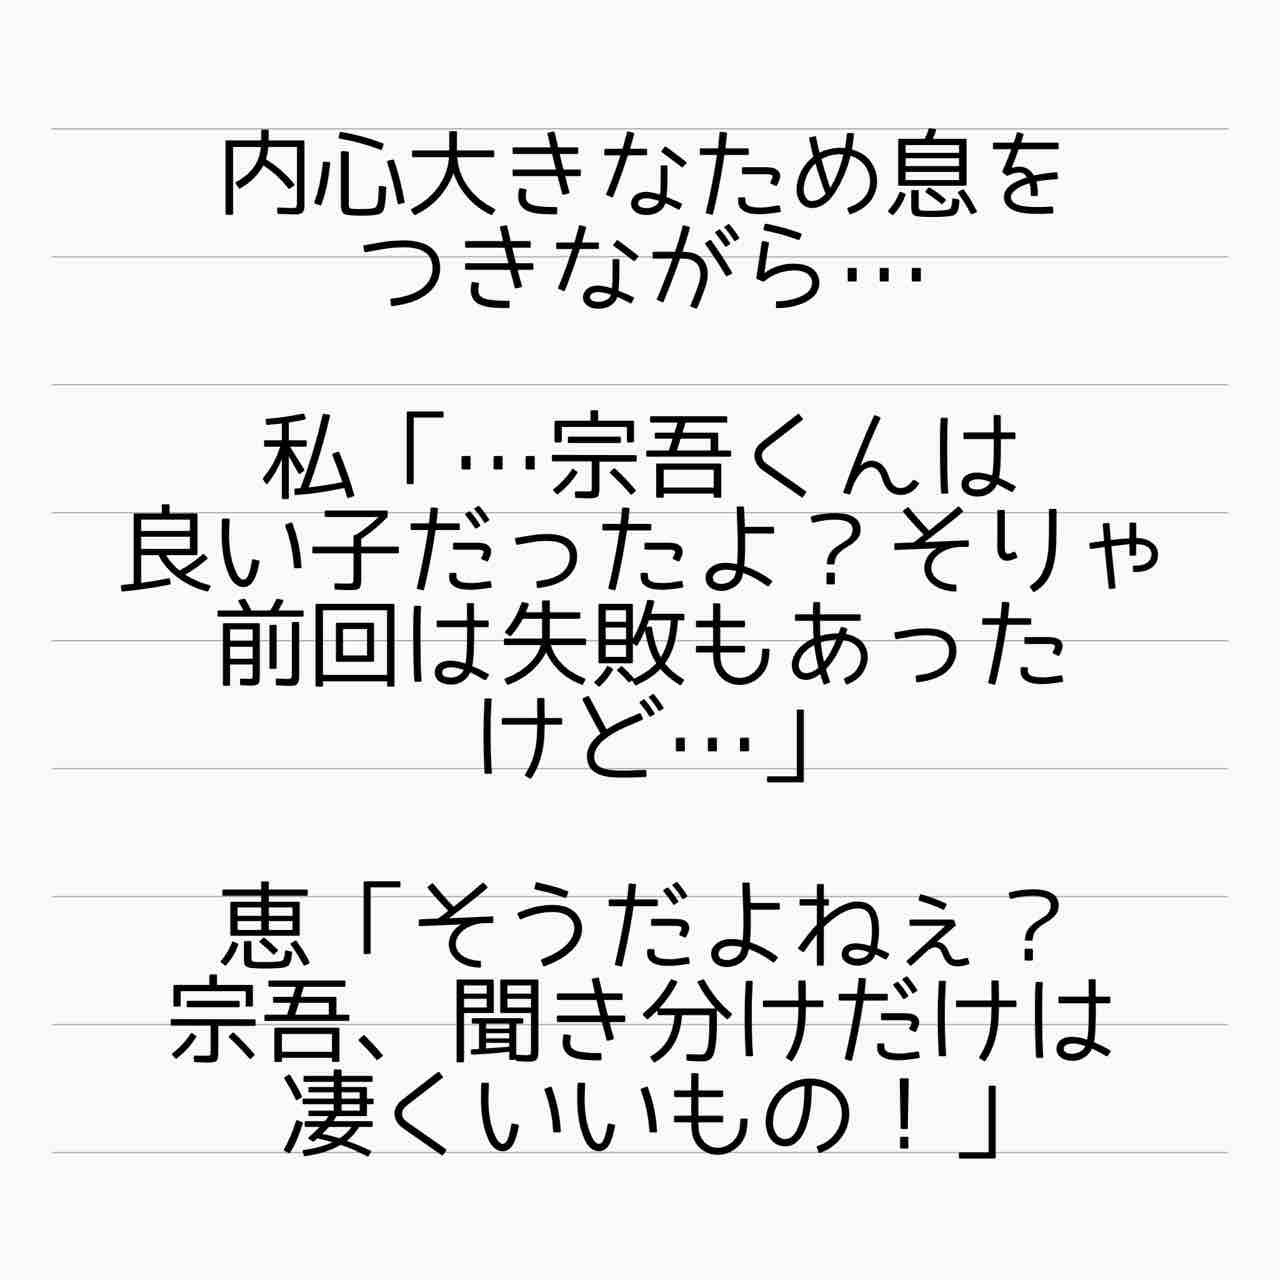 内心大きなため息を
つきながら…
私「…宗吾くんは
良い子だったよ？そりゃ
前回は失敗もあった
けど…」
恵「そうだよねぇ？
宗吾、聞き分けだけは
凄くいいもの！」